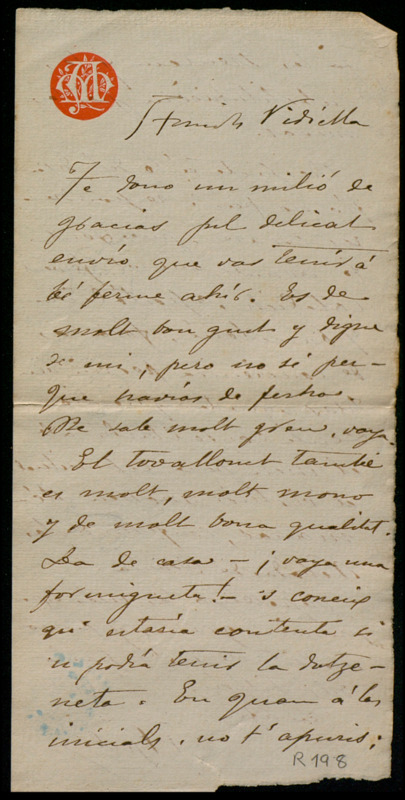 Vidiella
Te dono un milió de
gracias pel delicat
envío que vas tenir á
bé ferme ahir. Es de
molt bon gust y digne
de mi, pero no sé per-
que havías de ferho.
Me sab molt greu, vaya
El tovallonet també
es molt, molt mono
y de molt bona qualitat.
La de casa - ¡vaya una
formigueta! - 's coneix
qu' estaría contenta si
'n podía tenir la dotze-
neta. En quan á las
inicials, no t' apuris;
R198